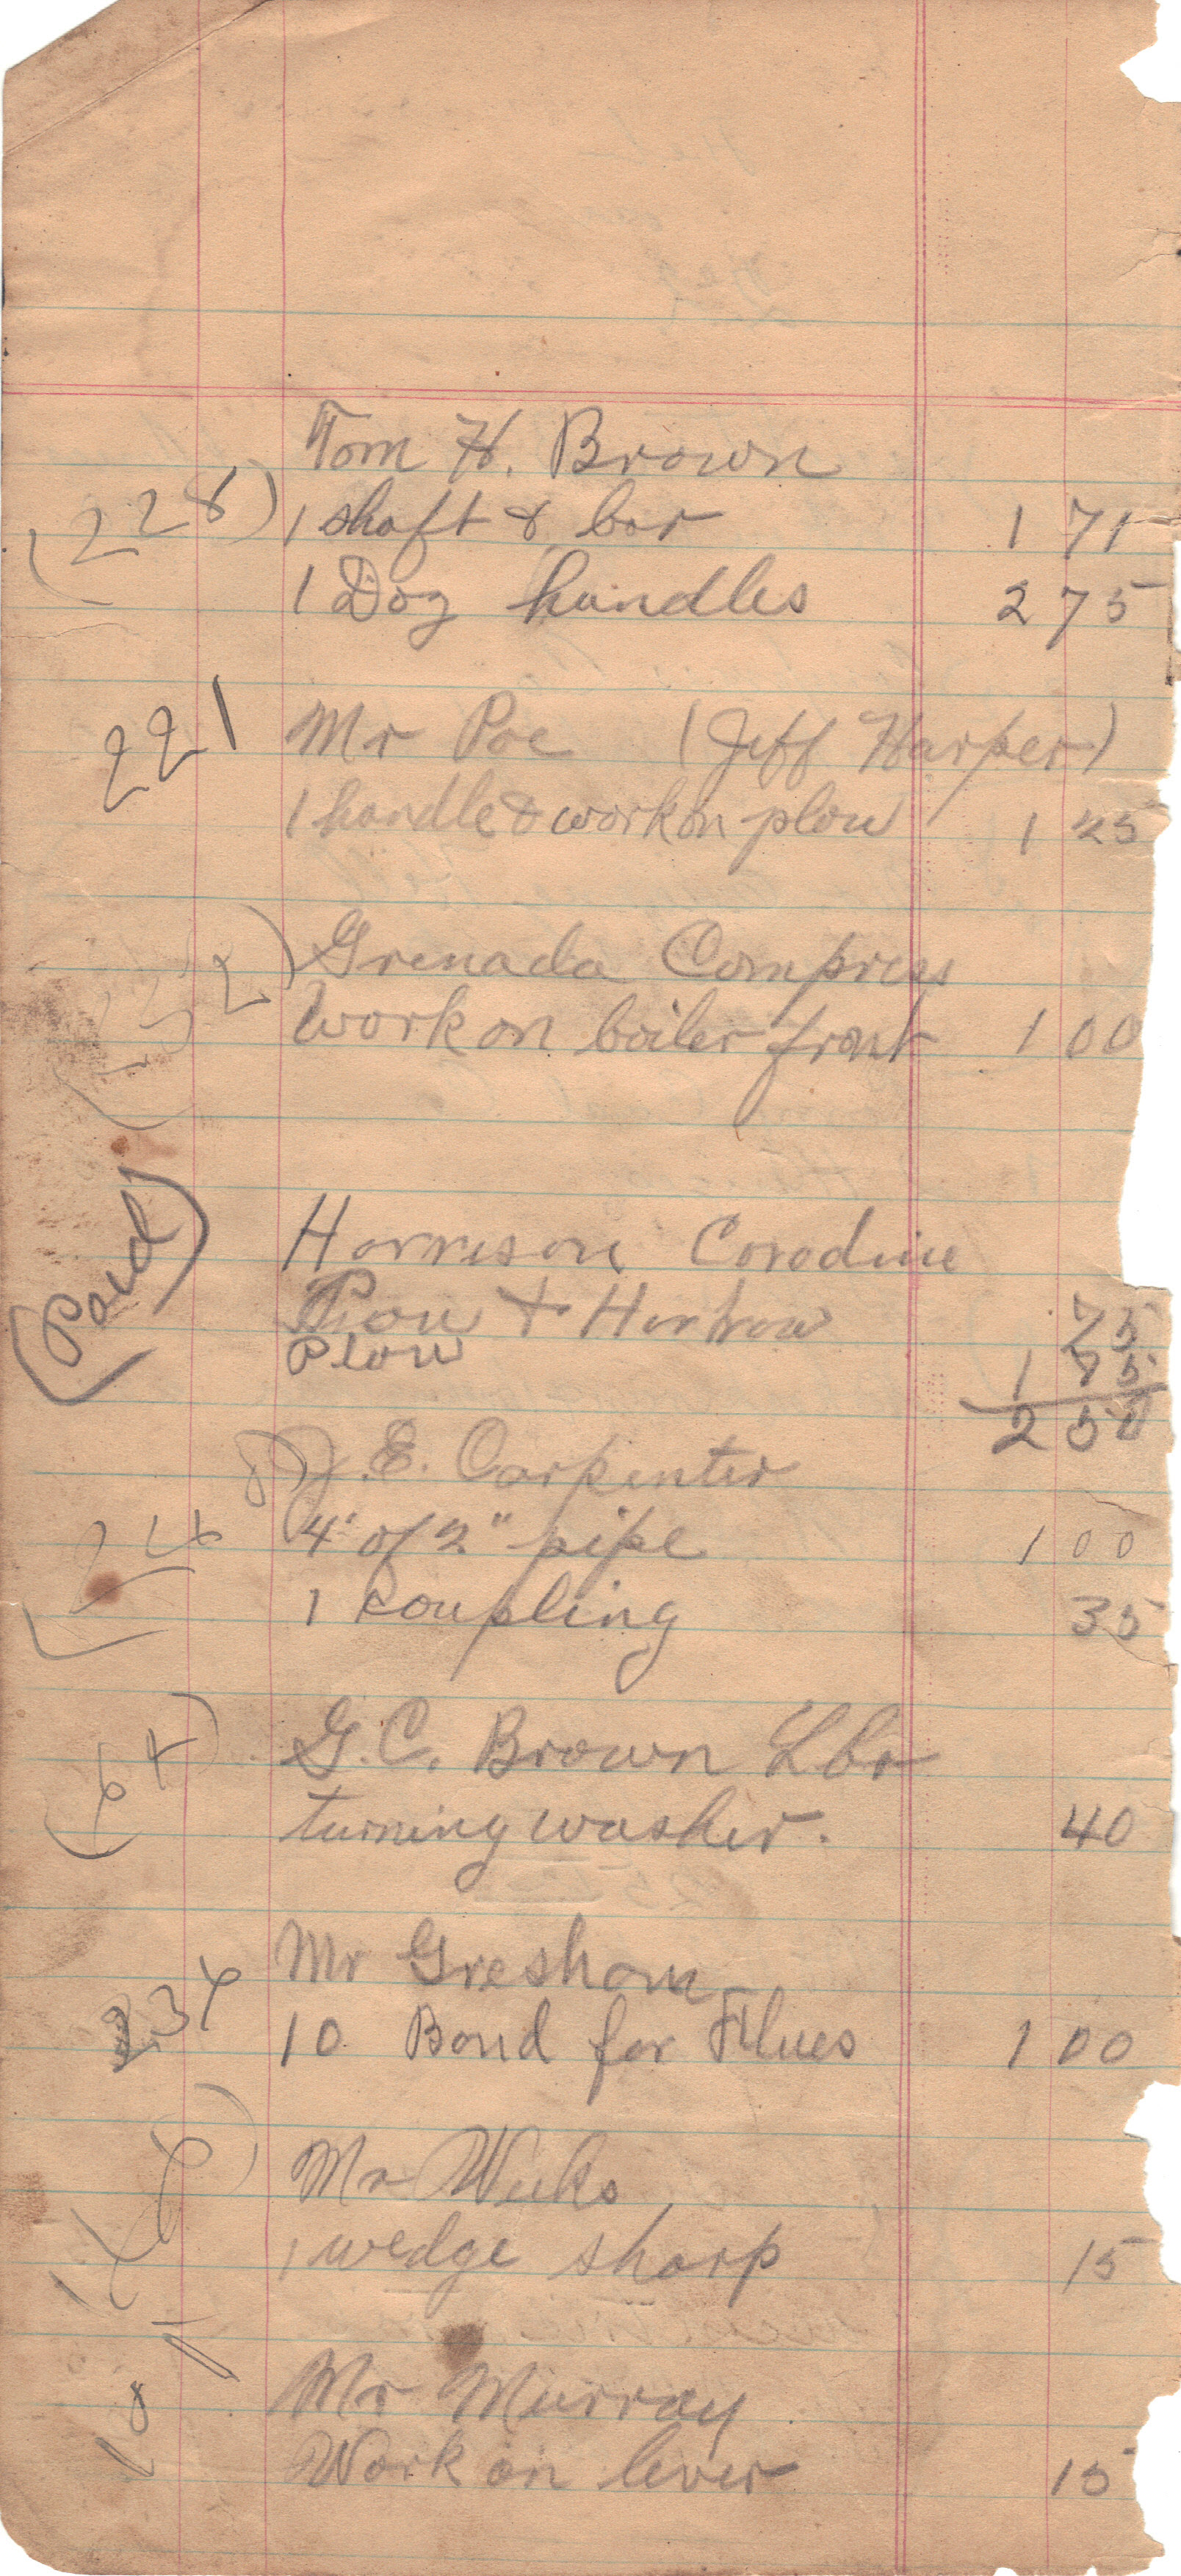 Tom H. Brown
(228) 1 shaft & bar 1 71
1 Dog handles 2 75
221 Mr Poe (Jeff Harper)
1 handle & work on plow 1 25
Grenada Compress
Work on boiler front 1 00
(Paid) Harrison Corodine
Plow & Harrow 75
Plow 1 75
2 50
J. E. Carpenter
4' of 2" pipe 1 00
1 coupling 35
(64) G. C. Brown Lbr
turning washer. 40
234 Mr Gresham
10 Band for Flues 1 00
Mr Weeks
1 wedge sharp 15
Mr Murray
Work on lever 15